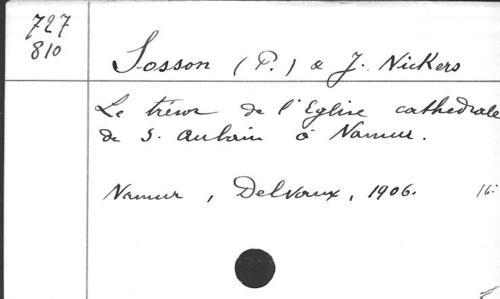 727
810
Sosson (P.) & J. Nickers
Le trésor de l'Eglise cathédrale
de S. Aubain à Namur.
Namur, Delvaux, 1906. 16: